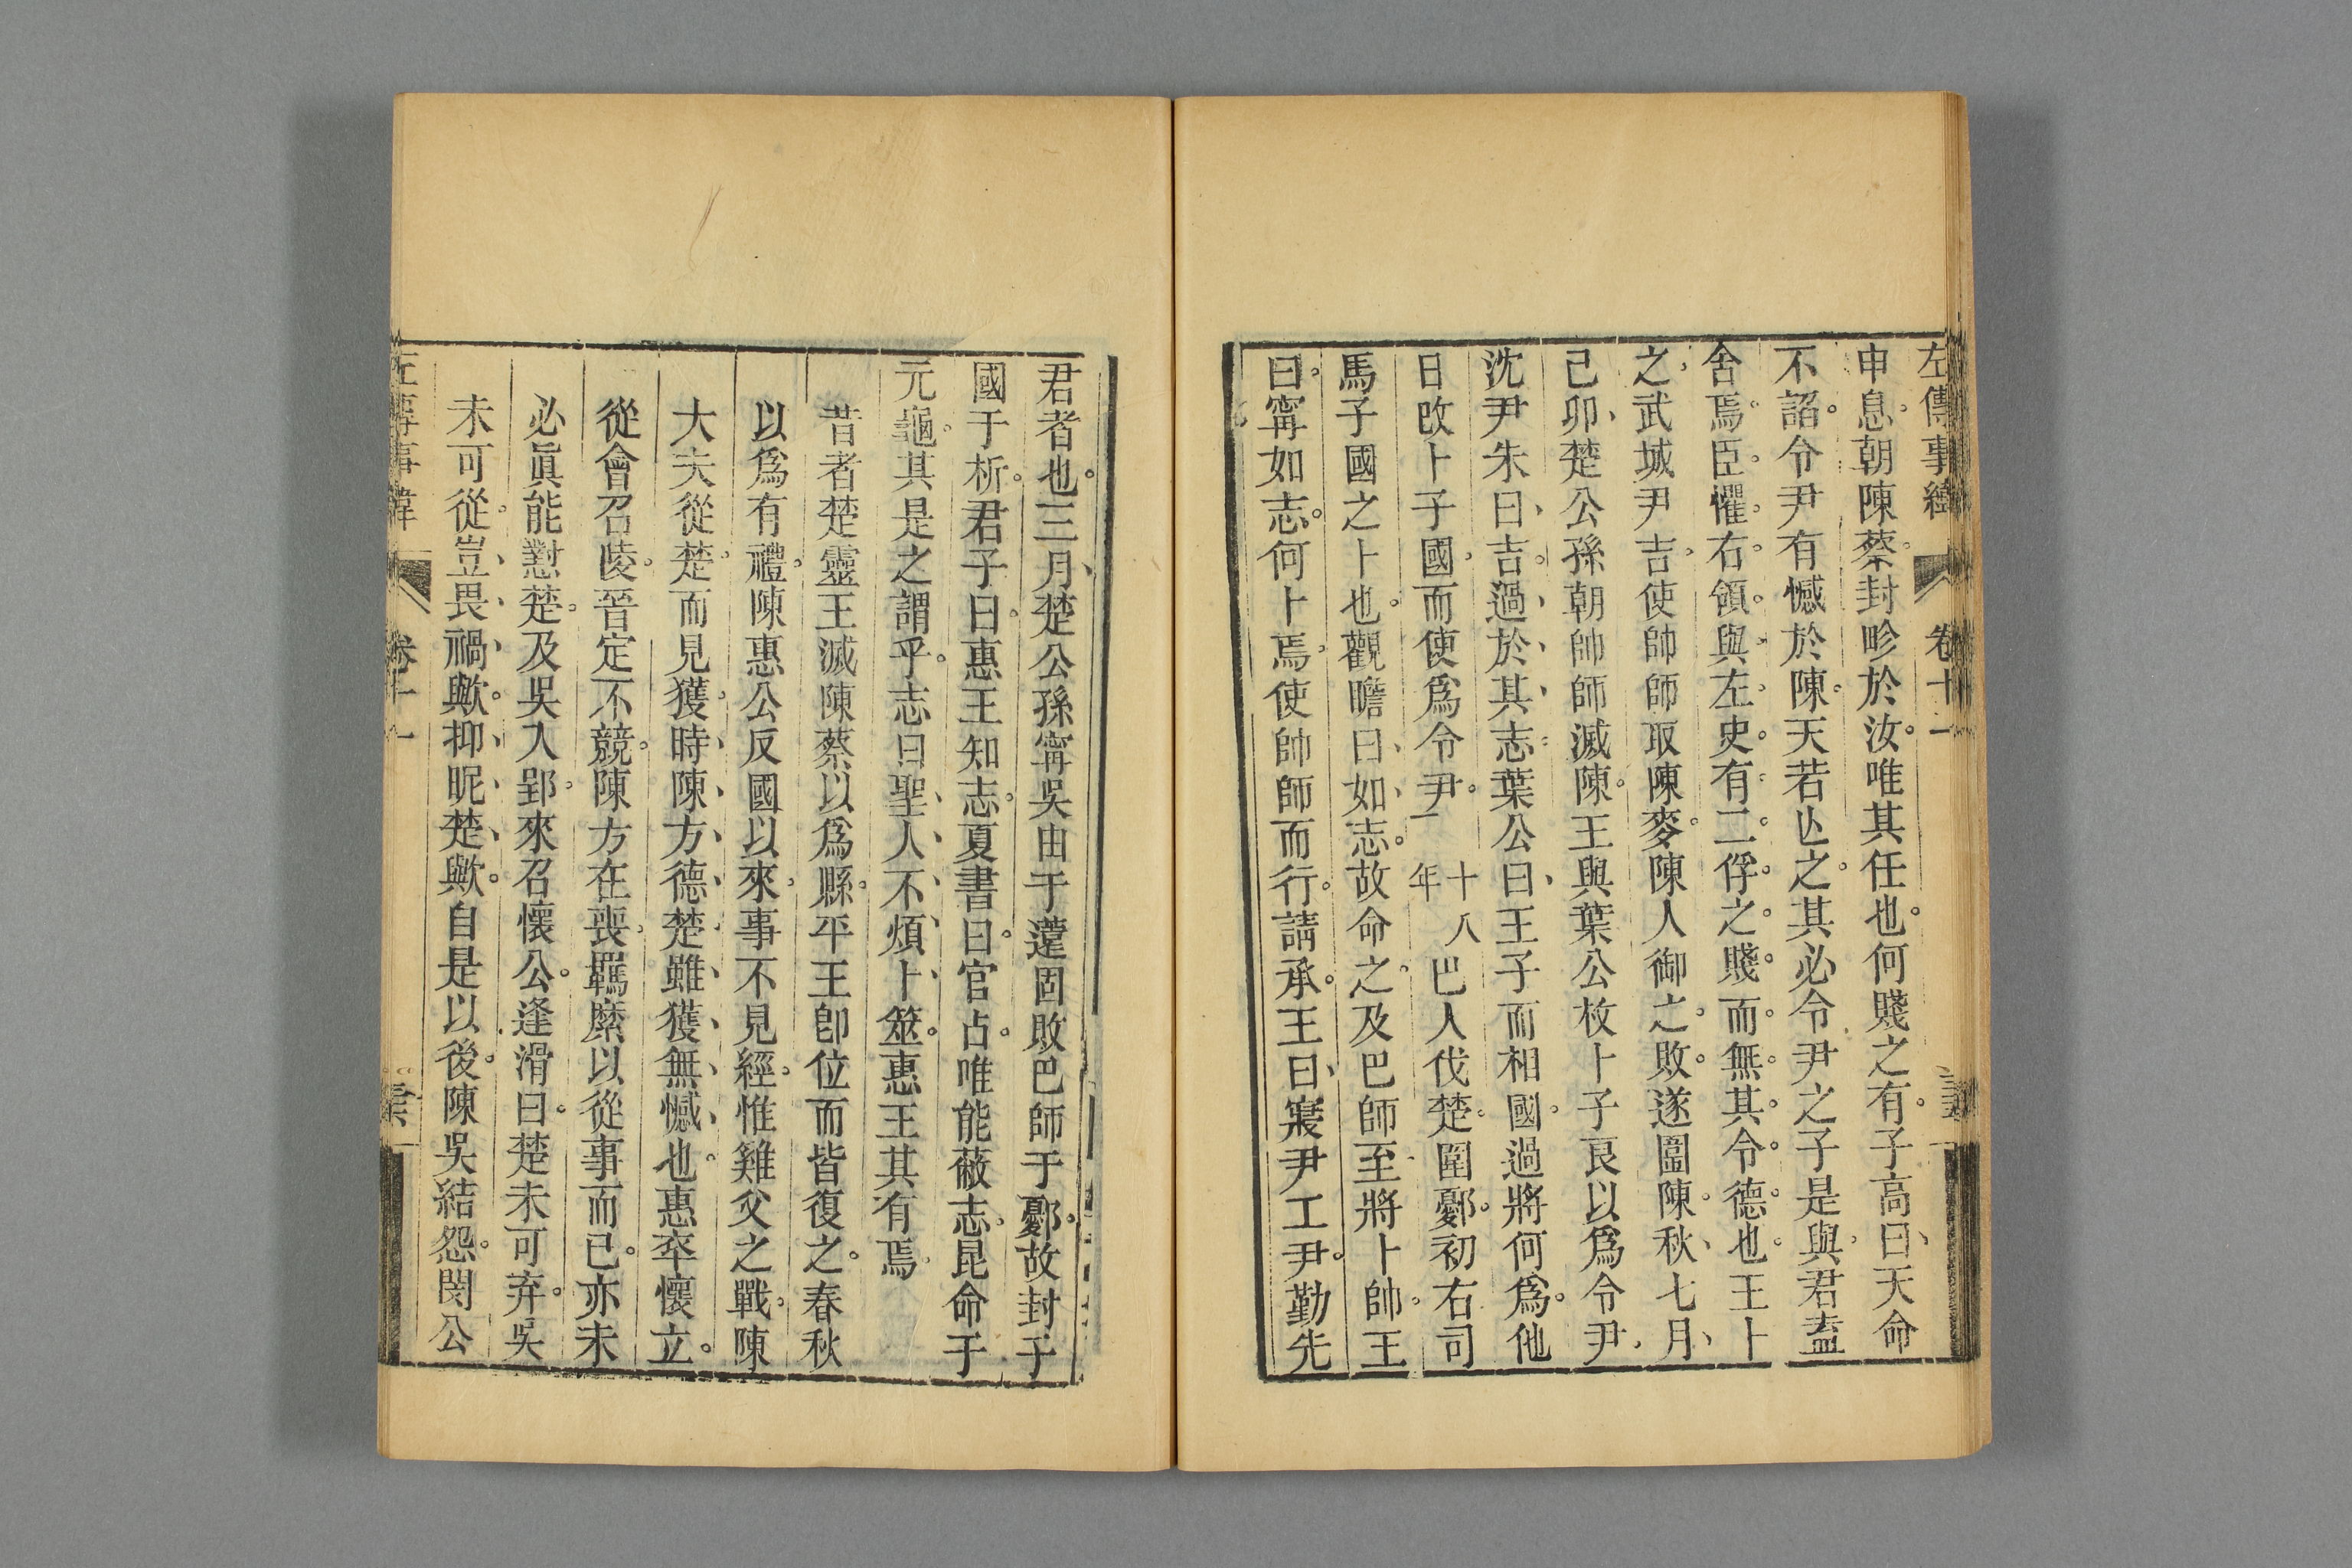 左傳事緯 卷十二
申息朝陳蔡封畛於汝唯其任也何賤之有子高曰天命
不謟令尹有憾於陳天若亾之其必令尹之子是與君盍
舍焉臣懼右領與左史有二俘之賤而無其令德也王卜
之武城尹吉使帥師取陳麥陳人御之敗遂圍陳秋七月
己卯楚公孫朝帥師滅陳王與葉公枚卜子良以爲令尹
沈尹朱曰吉過於其志葉公曰王子而相國過將何爲他
日改卜子國而使爲令尹 十八年 巴人伐楚圍鄾初右司
馬子國之卜也觀瞻曰如志故命之及巴師至將卜帥王
曰甯如志何卜焉使帥師而行請承王曰寢尹工尹勤先
君者也三月楚公孫甯吳由于薳固敗巴師于鄾故封子
國于析君子曰惠王知志夏書曰官占唯能蔽志昆命于
元龜其是之謂乎志曰聖人不煩卜筮惠王其有焉
昔者楚靈王滅陳蔡以爲縣平王卽位而皆復之春秋
以爲有禮陳惠公反國以來事不見經惟雞父之戰陳
大夫從楚而見獲時陳方德楚雖獲無憾也惠卒懷立
從會召陵晉定不競陳方在喪羈縻以從事而已亦未
必眞能懟楚及吳入郢來召懷公逢滑曰楚未可弃吳
未可從豈畏禍歟抑昵楚歟自是以後陳吳結怨閔公
左傳事緯 卷十